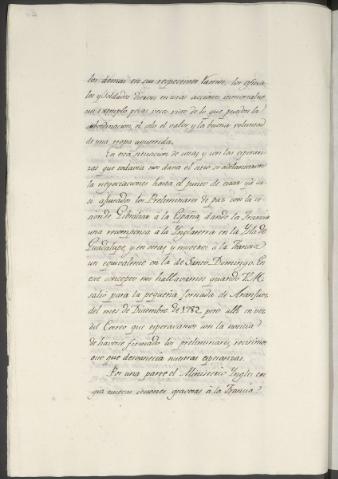 los demas en sus respectivas lineas, los oficia
les y soldados dieron en estas acciones
un exemplo pocas veces visto de lo que pueden la
subordinacion, el celo el valor, y la buena voluntad
de una tropa aguerrida.
En esta situacion de cosas y con las esperan
zas que todavia nos daria el sitio se adelantaron
la negociaciones hasta el punto de estar ya ca
si ajustados los Preliminares de paz con la ce
sion de Gibraltar á la España, dando la Francia
una recompensa á la Inglaterra en la Isla de
Guadalupe y en otras y nosotros á la Francia
un equivalente en la de Santo Domingo. En
este concepto nos hallabamos quando V. M.
salio para la pequeña Jornada de Aranjuez
del mes de Diciembre de 1782 pero alli en vez
del Correo que esperabamos con la noticia
de haverse firmado los preliminares, recivimos
que desvanecia nuestras esperanzas.
Por una parte el Ministerio Yngles
nuevas cesiones gravosas á la Francia